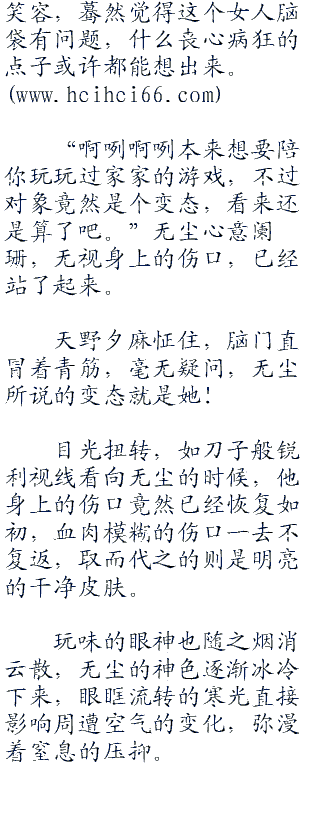 笑容，蓦然觉得这个女人脑
袋有问题，什么丧心病狂的
点子或许都能想出来。
(www.hcihci66.com)
“啊咧啊咧本来想要陪
你玩玩过家家的游戏，不过
对象竟然是个变态，看来还
是算了吧。”无尘心意阑
珊，无视身上的伤口，已经
站了起来。
天野夕麻怔住，脑门直
冒着青筋，毫无疑问，无尘
所说的变态就是她！
目光扭转，如刀子般锐
利视线看向无尘的时候，他
身上的伤口竟然已经恢复如
初，血肉模糊的伤口一去不
复返，取而代之的则是明亮
的干净皮肤。
玩味的眼神也随之烟消
云散，无尘的神色逐渐冰冷
下来，眼眶流转的寒光直接
影响周遭空气的变化，弥漫
着窒息的压抑。